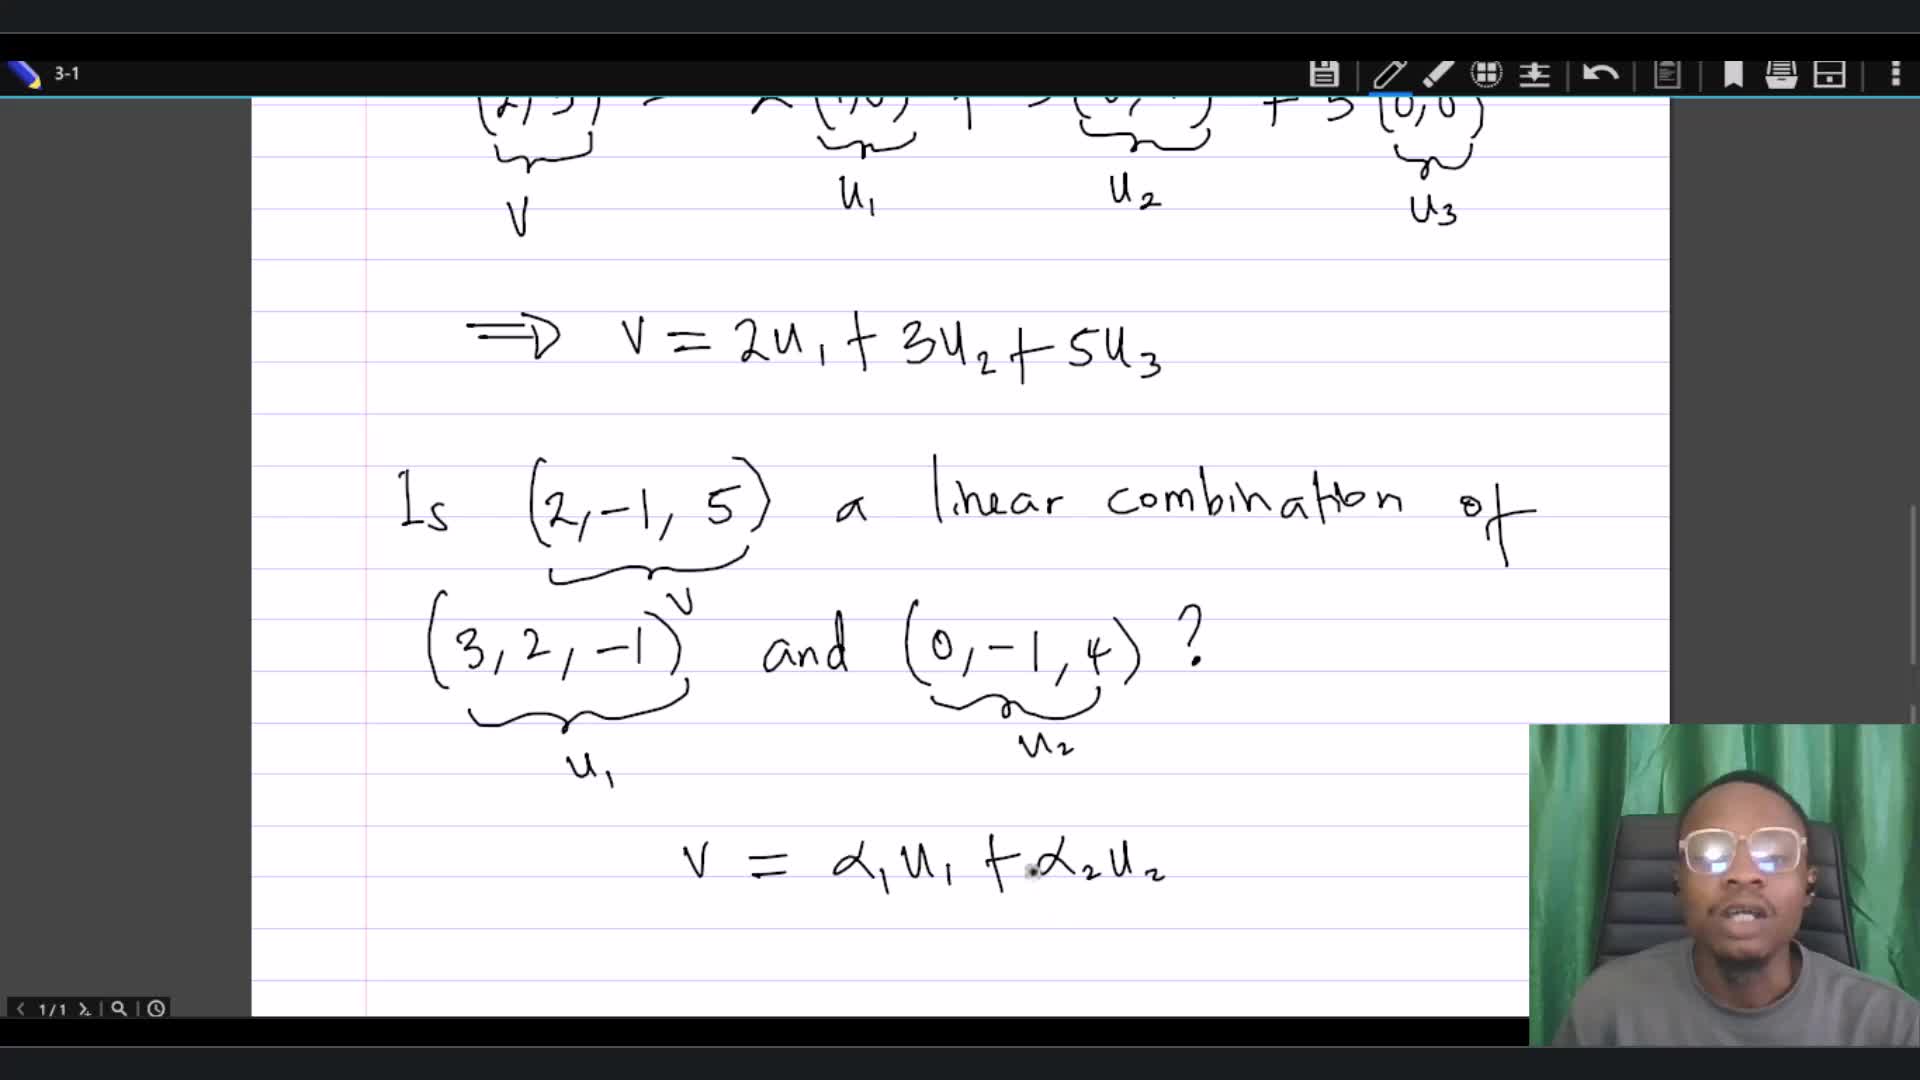 3-1
+ 5 (0,0)
V u₁ u₂ u₃
⇒ V = 2u₁ + 3u₂ + 5u₃
Is (2, -1, 5) a linear combination of
V
(3, 2, -1) and (0, -1, 4) ?
u₁ u₂
V = α₁u₁ + α₂u₂
1/1